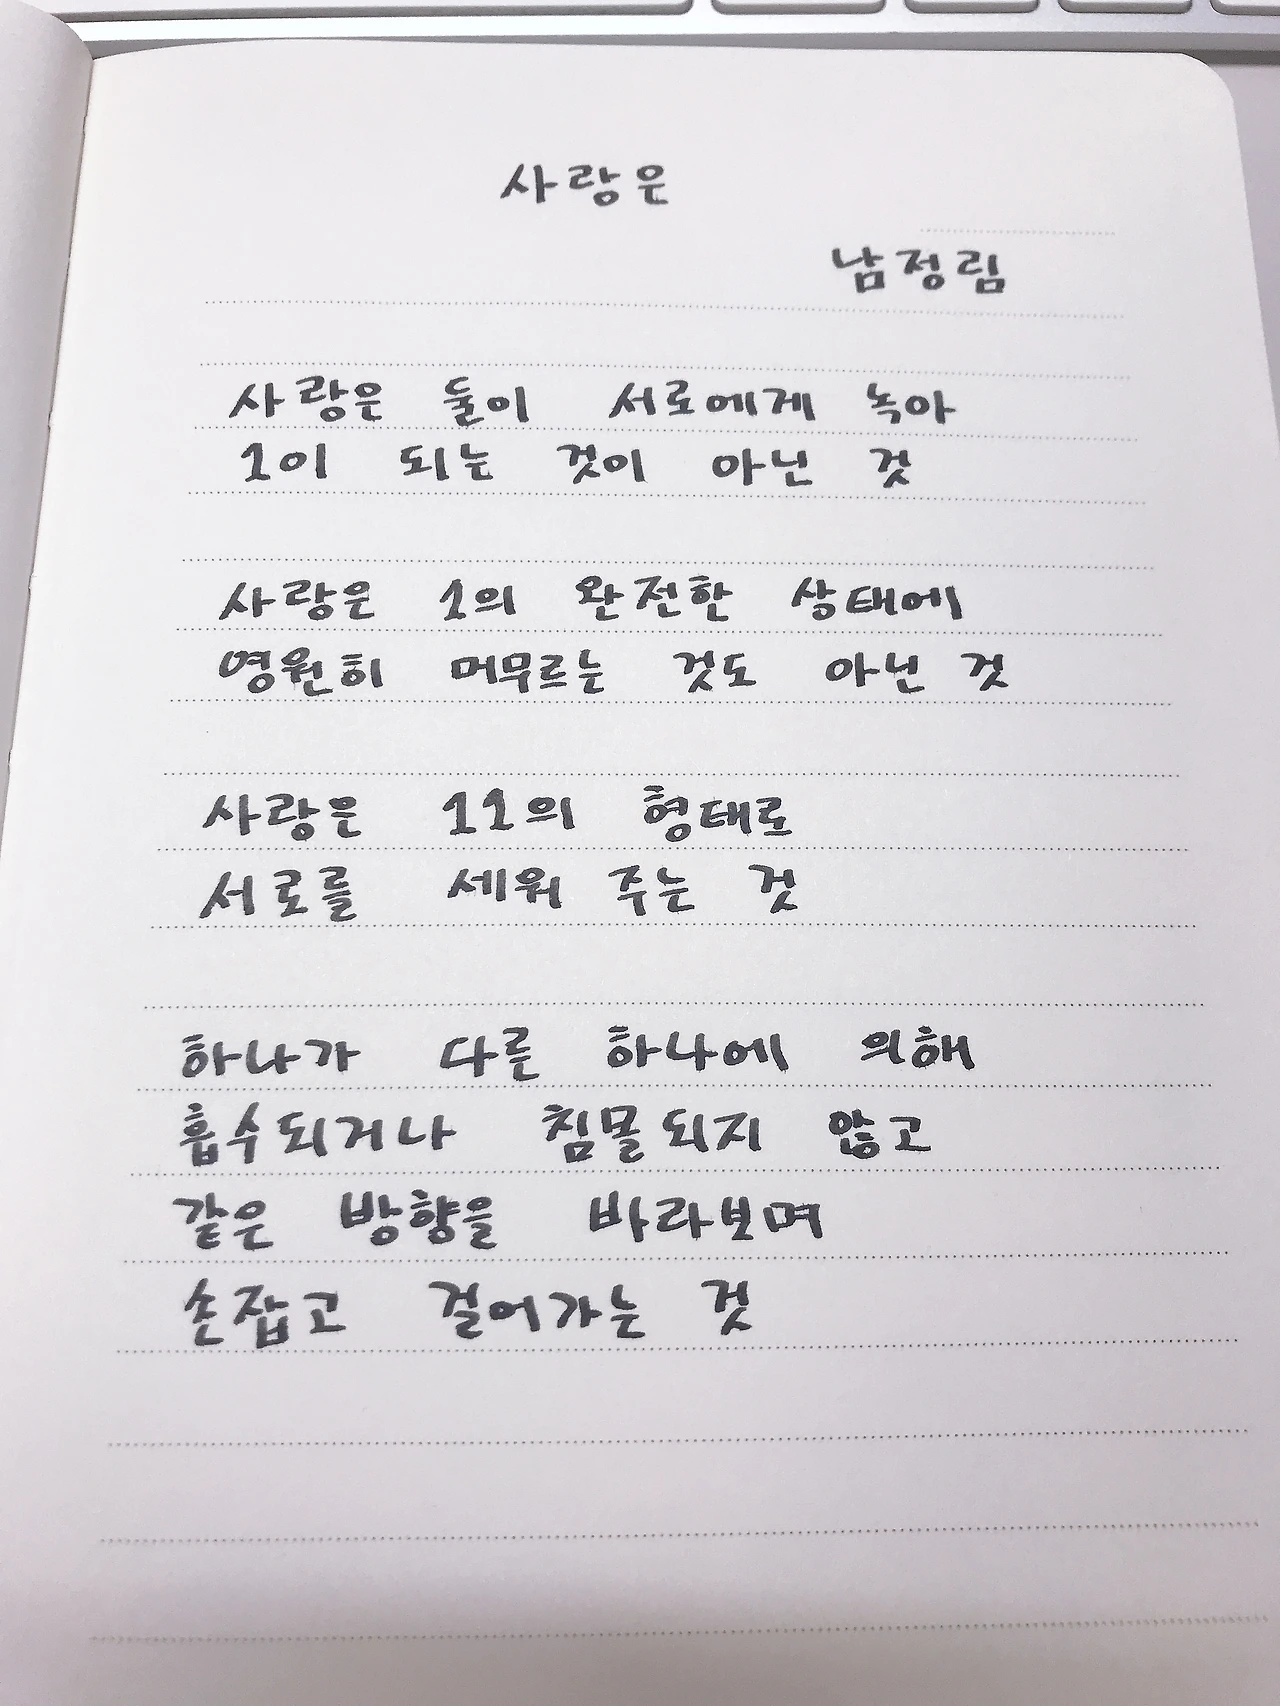 사랑은
남정림
사랑은 둘이 서로에게 녹아
1이 되는 것이 아닌 것
사랑은 1의 완전한 상태에
영원히 머무르는 것도 아닌 것
사랑은 11의 형태로
서로를 세워 주는 것
하나가 다른 하나에 의해
흡수되거나 침몰되지 않고
같은 방향을 바라보며
손잡고 걸어가는 것